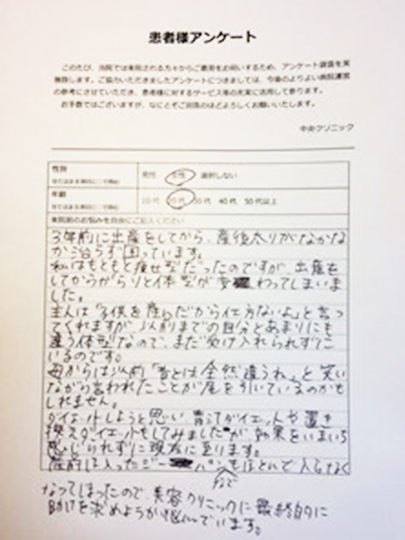 患者様アンケート
このたび、当院では来院される方々からご意見をお伺いするため、アンケート調査を実
施致します。ご協力いただきましたアンケートにつきましては、今後のよりよい病院運営
の参考にさせていただき、患者様に対するサービス等の充実に活用して参ります。
お手数ではございますが、なにとぞご回答のほどよろしくお願いいたします。
中央クリニック
性別 男性 女性 選択しない
年齢 10代 20代 30代 40代 50代以上
来院前のお悩みを自由にご記入ください
3年前に出産をしてから、産後太りがなかな
か治らず困っています。
私はもともと痩せ型だったのですが、出産を
してからがらりと体型が変わってしまいま
した。
主人は「子供を産んだから仕方ないよ」と言っ
てくれますが、以前までの自分とあまりにも
違う体型なので、まだ受け入れられずに
いるのです。
母からは以前「昔とは全然違うわ」と笑い
ながら言われたことが尾を引いているのかも
しれません。
ダイエットしようと思い、ダイエットや置き
換えダイエットもしてみましたが効果をいまいち
感じられずに現在に至ります。
産前は入ったジーパンもほとんど入らなく
なってしまったので、美容クリニックに最終的に
助けを求めようか悩んでいます。